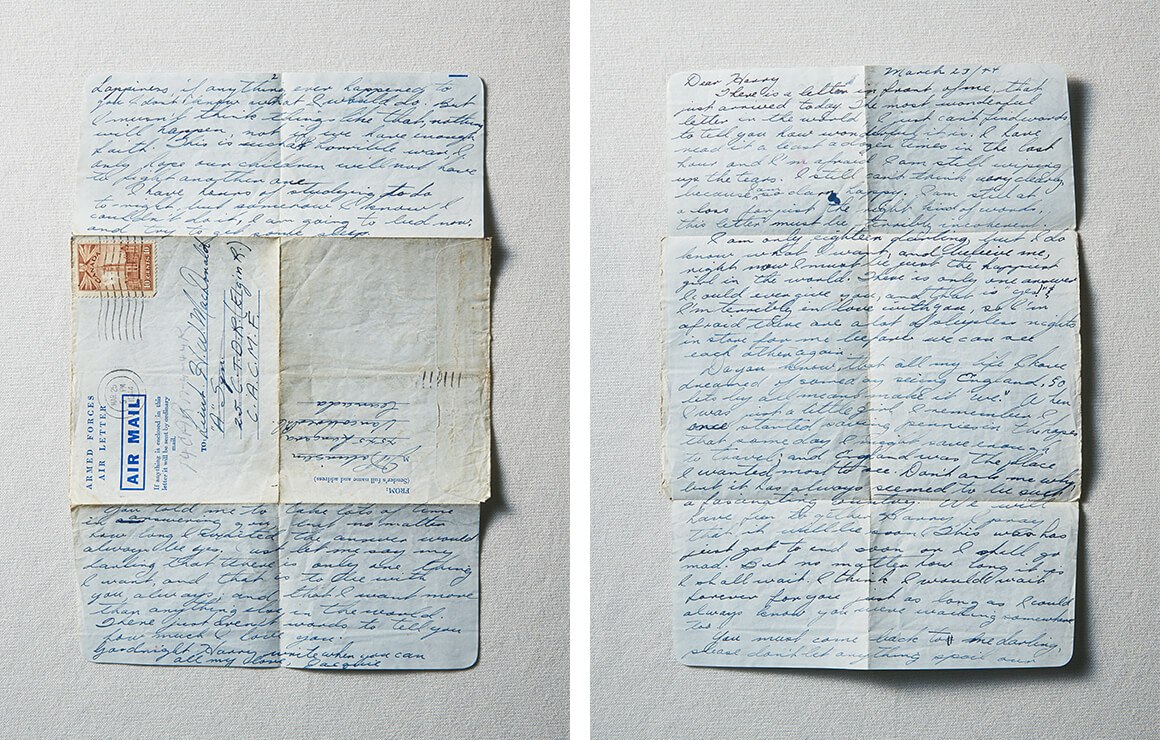 2
happiness, if anything ever happened to
you I don't know what I would do. But
I mustn't think things like that, nothing
will happen, not if we have enough
faith. This is such a horrible war, I
only hope our children will not have
to fight another one.
I have hours of studying to do
to-night but somehow I know I
couldn't do it, I am going to bed now
and try to get some sleep.
CANADA
10 CENTS 10
ARMED FORCES
AIR LETTER
AIR MAIL
If anything is enclosed in this
letter it will be sent by ordinary
mail.
TO:
Lieut H. W. MacDonald
A Sqn
25 C.T.D.R. (Elgin R.)
C.A.C. M.F.
FROM:
(Sender's full name and address)
Vancouver
Canada
You told me to take lots of time
in answering you but no matter
how long I waited the answer would
always be yes. Just let me say my
darling that there is only one thing
I want, and that is to be with
you always, and that I want more
than anything else in the world.
There just aren't words to tell you
how much I love you.
Goodnight Harry, write when you can
all my love Jacquie
March 23/44
Dear Harry
There is a letter in front of me, that
just arrived today. The most wonderful
letter in the world. I just can't find words
to tell you how wonderful it is. I have
read it a least a dozen times in the last
hour and I'm afraid I am still wiping
up the tears. I still can't think very clearly
because I am so darn happy. I am still at
a loss for just the right kind of words,
this letter must be terribly incoherent.
I am only eighteen darling but I do
know what I want, and believe me,
right now I must be just the happiest
girl in the world. There is only one answer
I could ever give you, and that is "yes"!
I'm terribly in love with you, so I'm
afraid there are a lot of sleepless nights
in store for me before we can see
each other again.
Do you know, that all my life I have
dreamed of someday seeing England, so
lets by all means make it "we". When
I was just a little girl, I remember I
once started saving pennies in hopes
that some day I might save enough
to travel; and England was the place
I wanted most to see. Don't ask me why
but it has always seemed to be such
a fascinating country. We will
have fun together Harry, I pray
that it will be soon. This war has
just got to end soon or I shall go
mad. But no matter how long it is
I shall wait, I think I would wait
forever for you just as long as I could
always know you were waiting somewhere
too.
You must come back to me darling,
please don't let anything spoil our